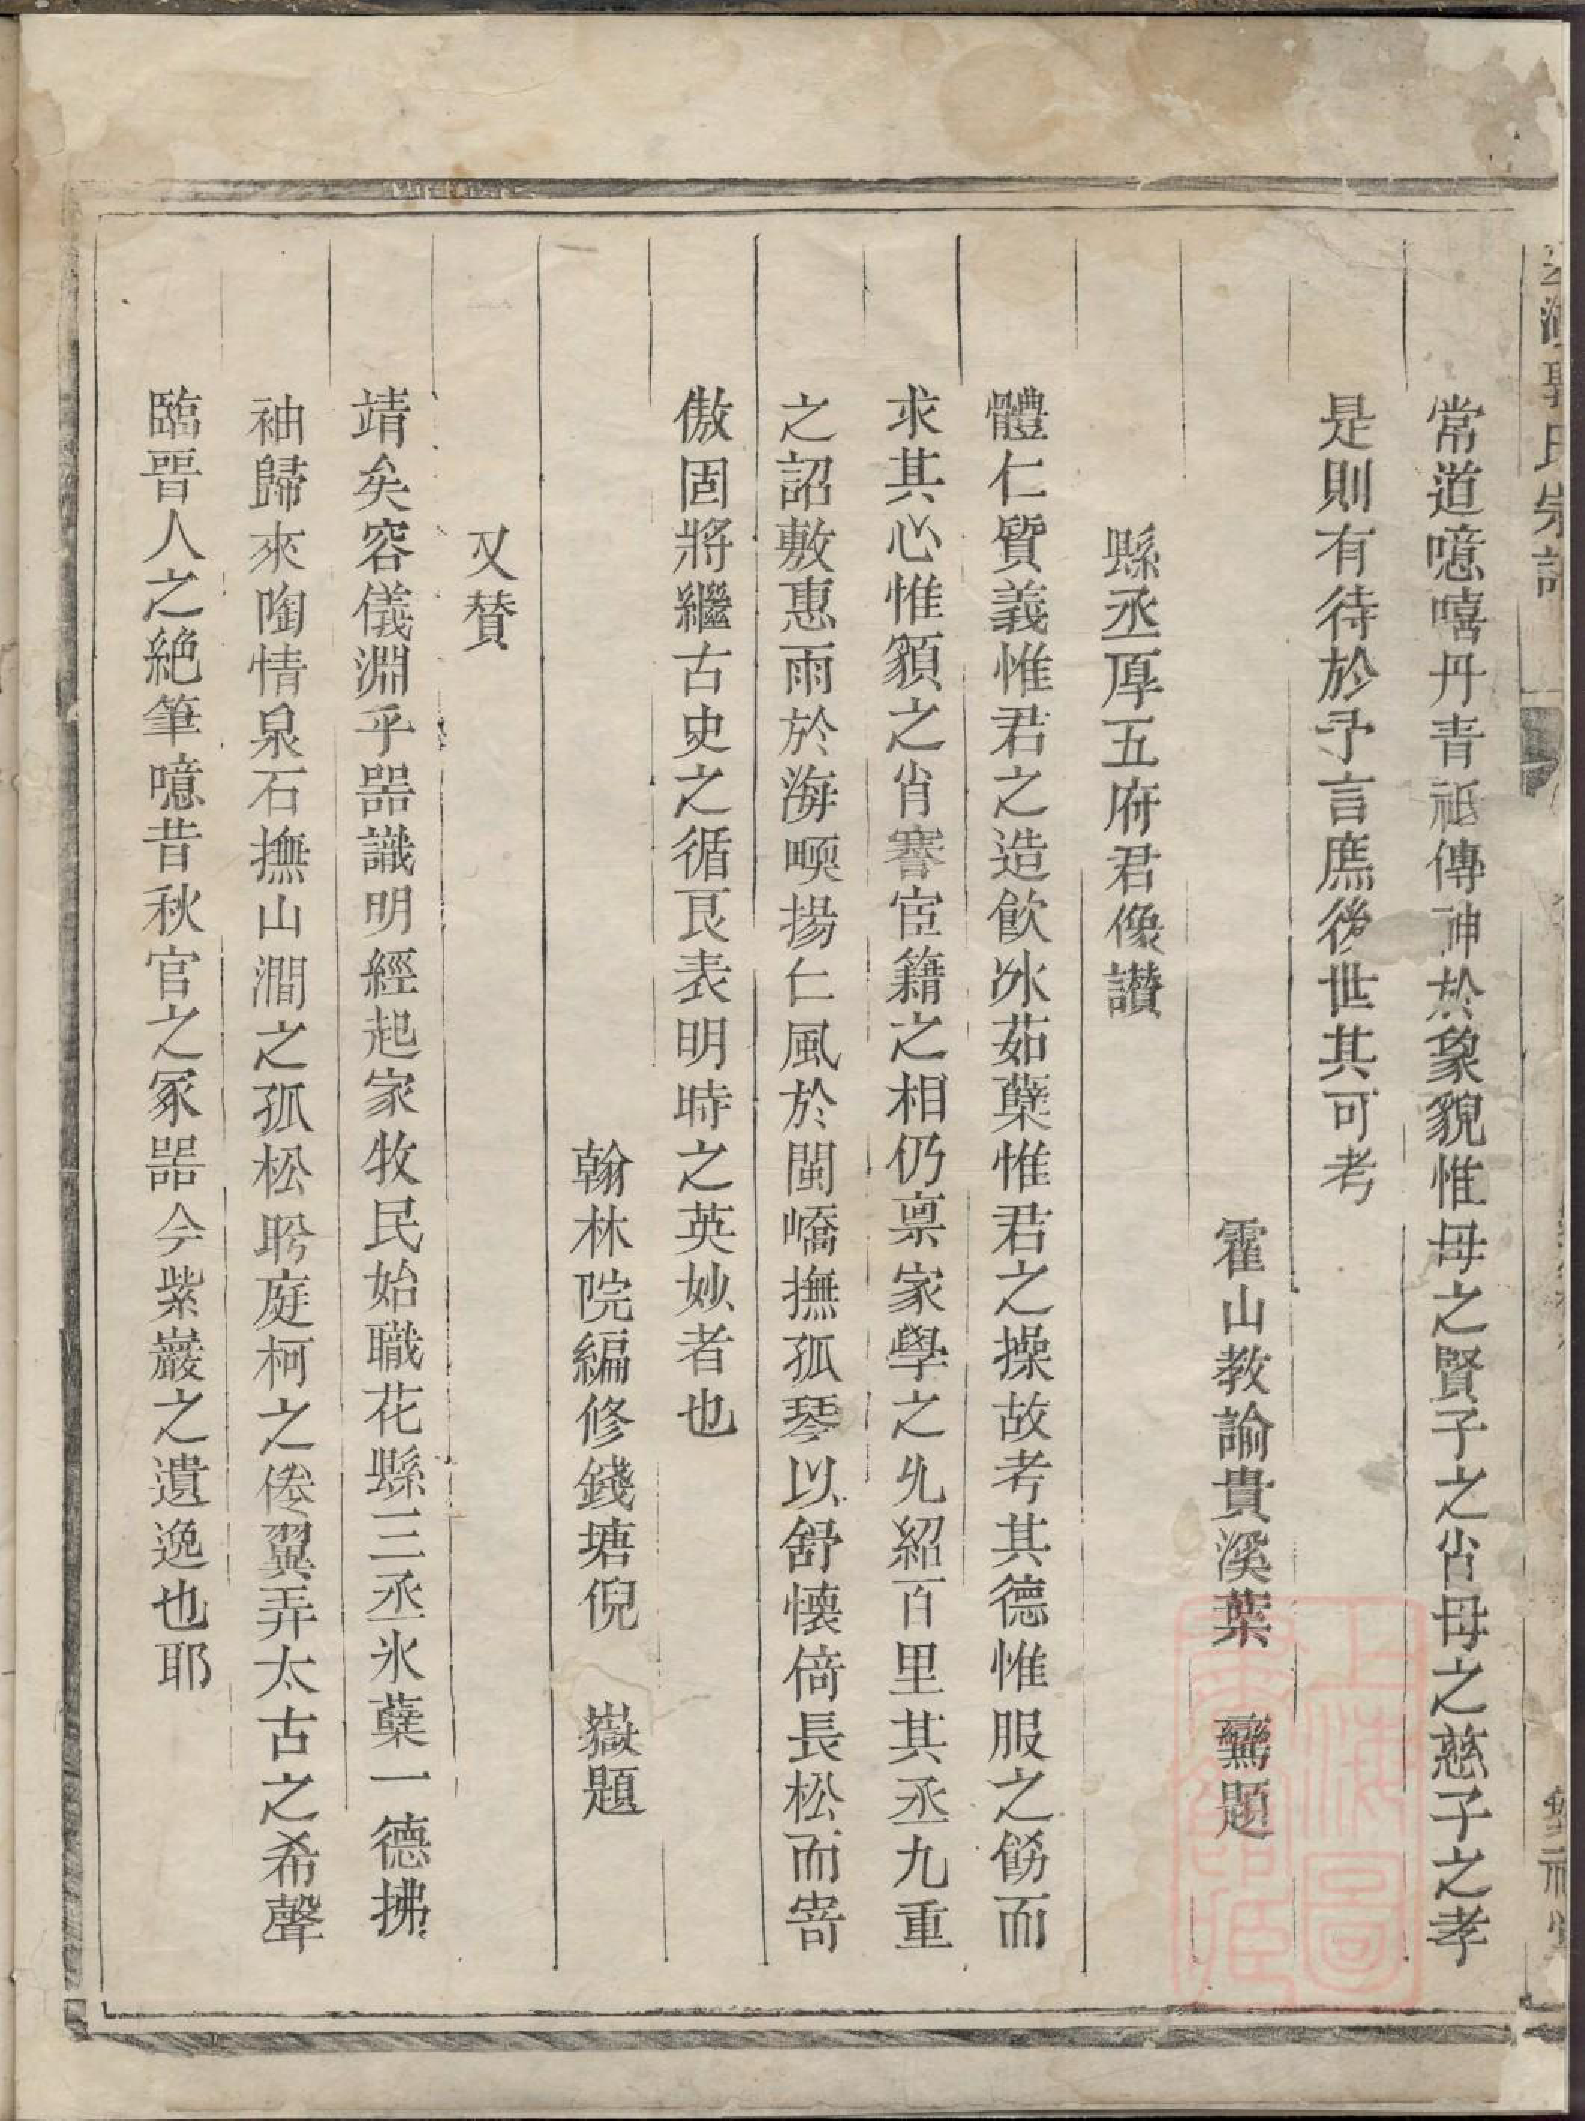 氏宗譜
常道噫嘻丹青祗傳神於象貌惟母之賢子之肖母之慈子之孝
是則有待於予言庶後世其可考
霍山教諭貴溪葉 鸞題
縣丞厚五府君像讃
體仁質義惟君之造飲冰茹蘗惟君之操故考其德惟服之餝而
求其心惟貌之肖謇宦籍之相仍稟家學之允紹百里其丞九重
之詔敷惠雨於海㬇揚仁風於閩嶠撫孤琴以舒懷倚長松而寄
傲固將繼古史之循良表明時之英妙者也
翰林院編修錢塘倪 嶽題
又賛
靖矣容儀淵乎器識明經起家牧民始職花縣三丞氷蘗一德拂
袖歸來陶情泉石撫山澗之孤松盻庭柯之倦翼弄太古之希聲
臨晉人之絶筆噫昔秋官之冢器今紫巖之遺逸也耶
上海圖書館藏